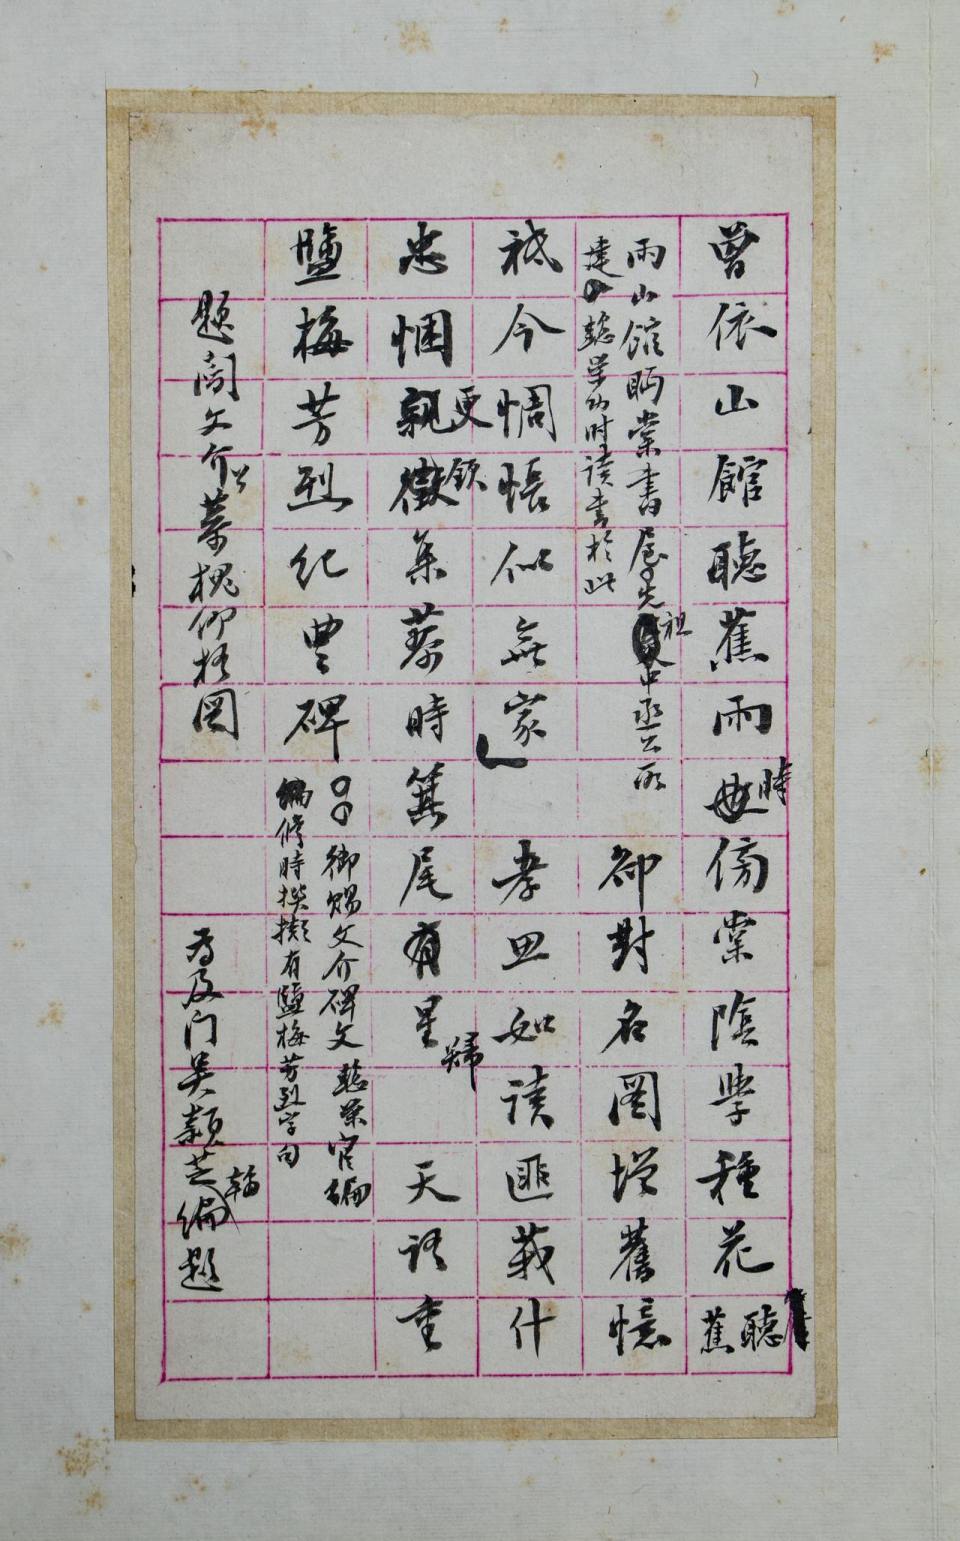 曾依山館聽蕉雨時傍棠陰學種花聽蕉
雨山館晒棠書屋先祖中丞公所
建懿榮幼時讀書於此
卻對名圖增舊憶
祇今惆悵似無家
孝思如讀匪莪什
忠悃更欽徵集蔡時箕尾有星歸
天語重
鹽梅芳烈紀豐碑
御賜文介碑文懿榮官編
編修時撰擬有鹽梅芳烈字句
題閻文介公慕槐仰梧圖
為及門吳頴芝編題